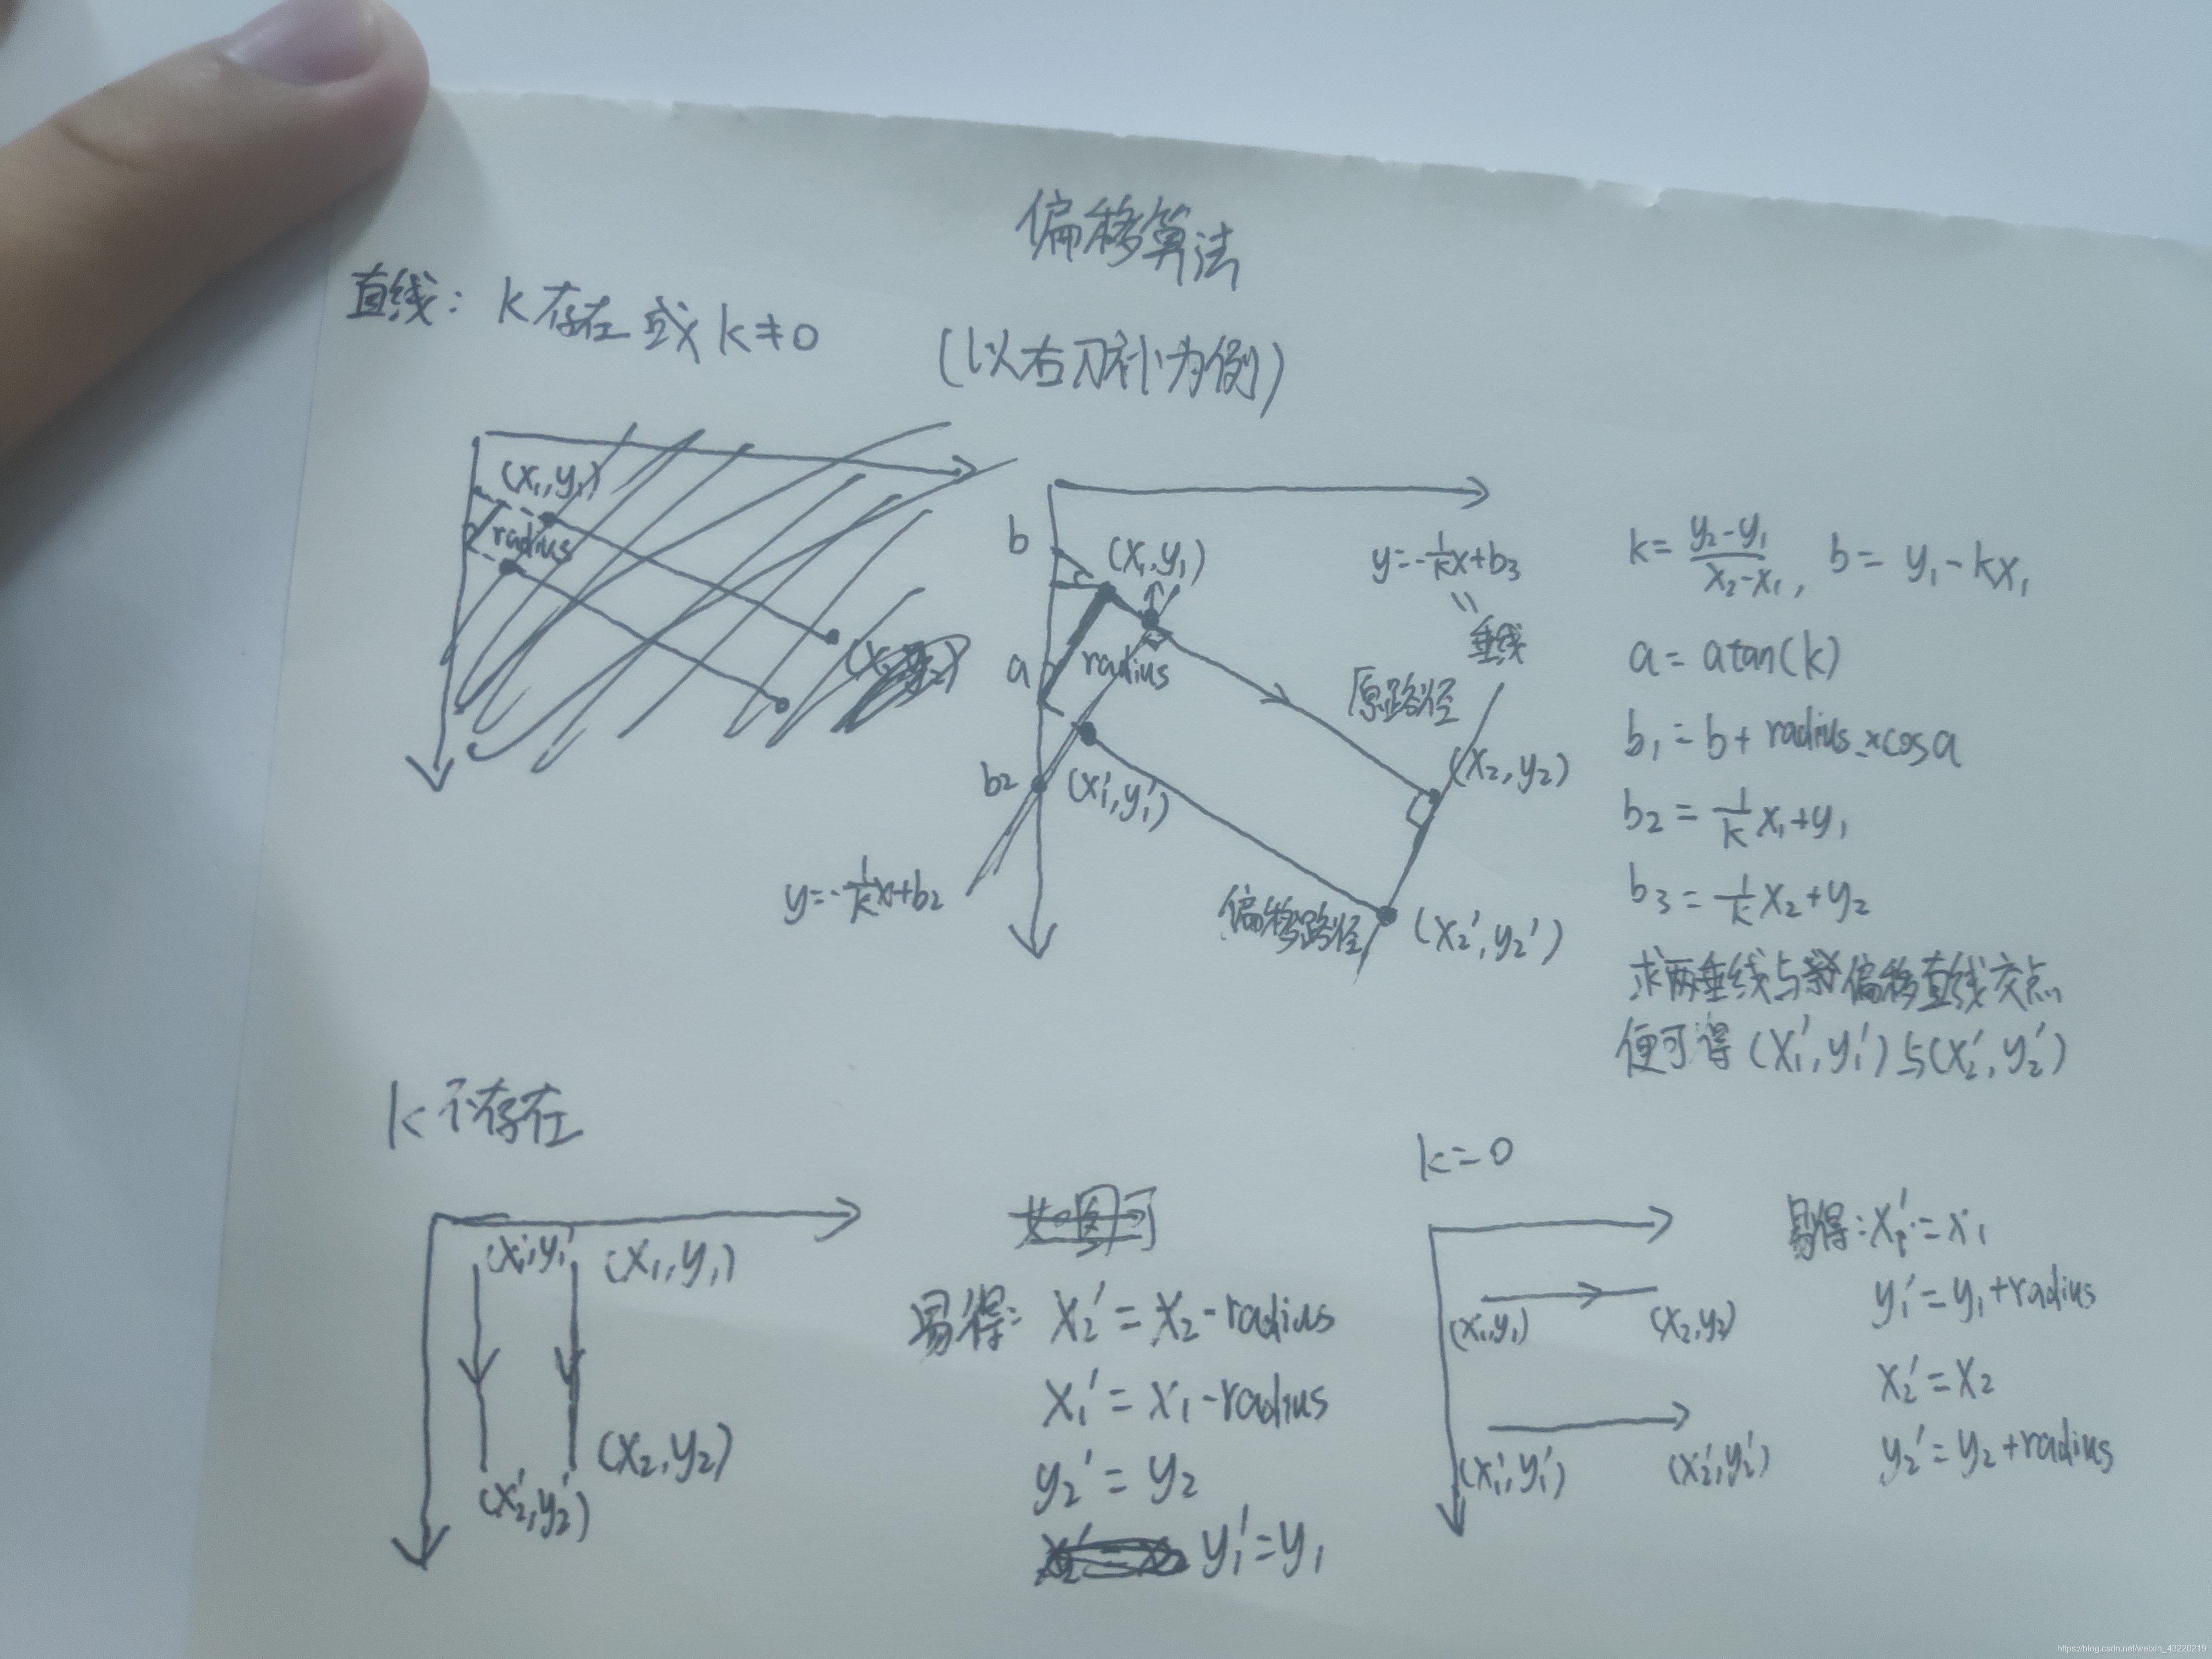 偏移算法
直线: k存在或k≠0
(以右刀补为例)
(x₁,y₁)
radius
b
(x₁,y₁)
y=-1/k x+b₃
垂线
a
radius
原路径
(x₂,y₂)
b₂
(x₁',y₁')
y=-1/k x+b₂
偏移路径
(x₂',y₂')
k=(y₂-y₁)/(x₂-x₁), b=y₁-kx₁
a=atan(k)
b₁=b+radius×cosa
b₂=1/k x₁+y₁
b₃=1/k x₂+y₂
求两垂线与偏移直线交点
便可得(x₁',y₁')与(x₂',y₂')
k不存在
(x₁',y₁' (x₁,y₁)
(x₂,y₂)
(x₂',y₂')
如图可
易得: x₂'=x₂-radius
x₁'=x₁-radius
y₂'=y₂
y₁'=y₁
k=0
(x₁,y₁) (x₂,y₂)
(x₁',y₁') (x₂',y₂')
易得: x₁'=x₁
y₁'=y₁+radius
x₂'=x₂
y₂'=y₂+radius
https://blog.csdn.net/weixin_43220219